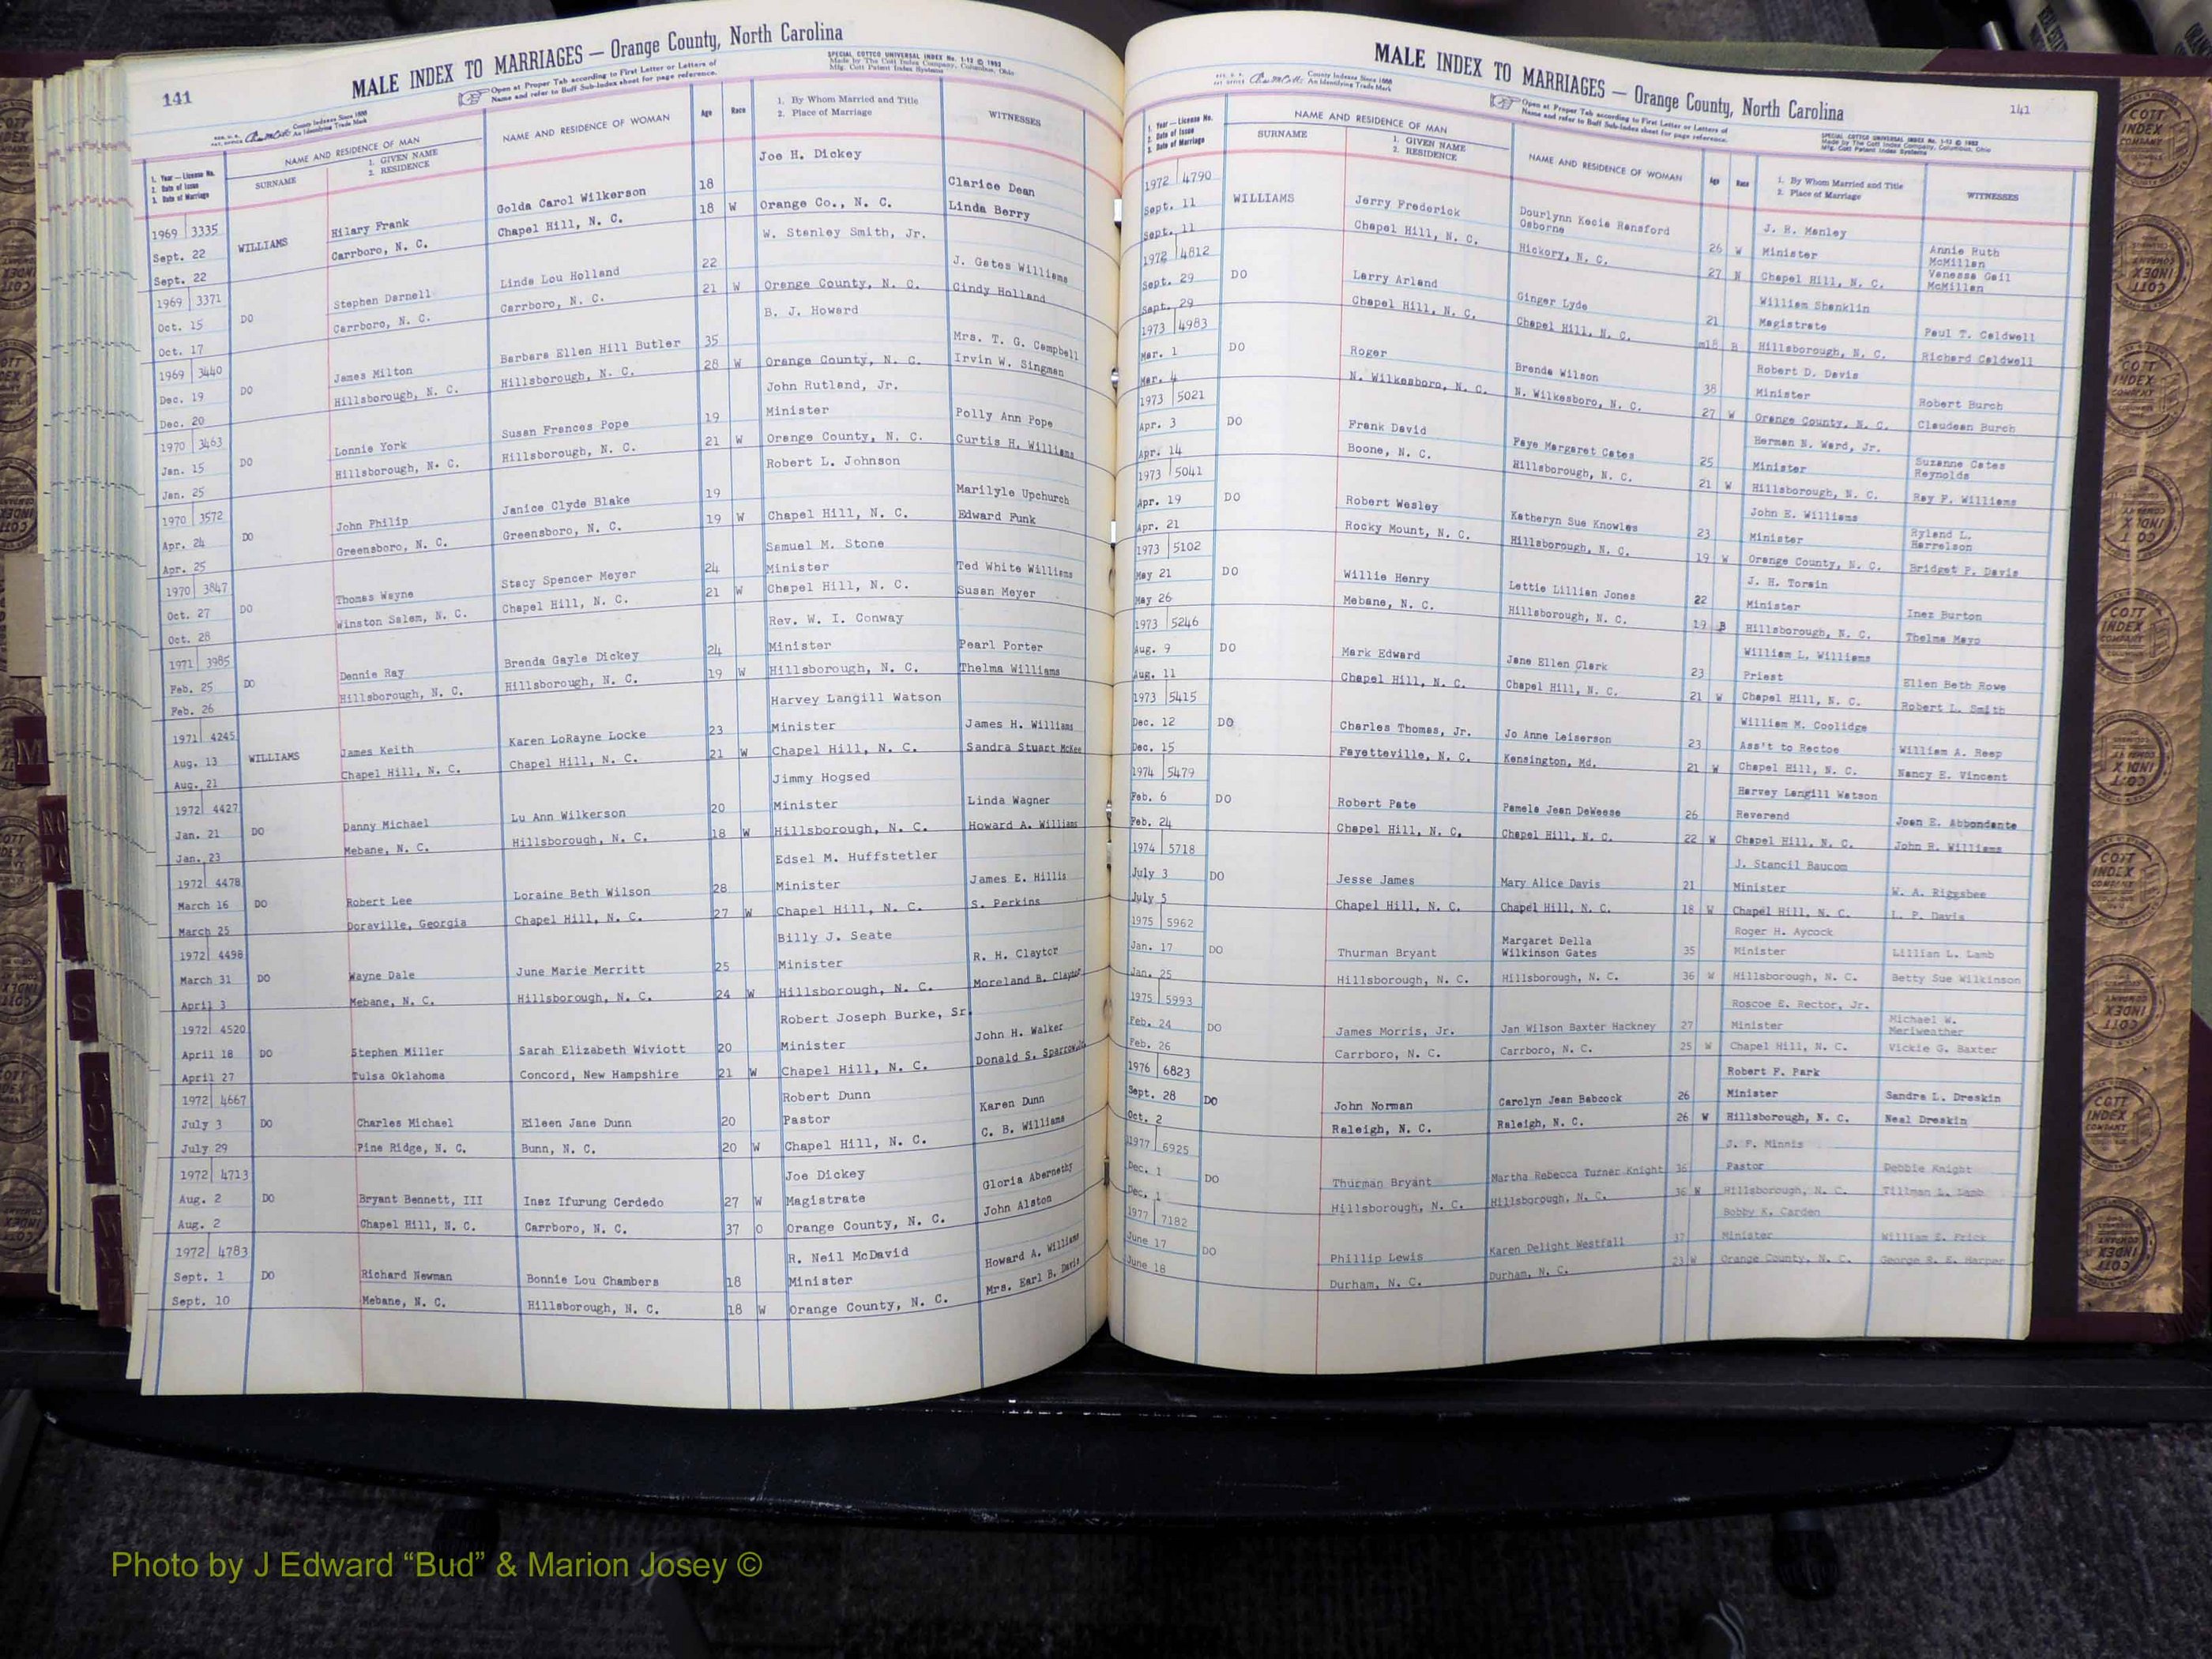 141
MALE INDEX TO MARRIAGES — Orange County, North Carolina
Open at Proper Tab according to First Letter or Letters of
Name and refer to Buff Sub-Index sheet for page reference.
SPECIAL COTTCO UNIVERSAL INDEX No. 1-12 © 1953
Made by The Cott Index Company, Columbus, Ohio
Mfg. Cott Patent Index Systems
County Indexes Since 1888
An Identifying Trade Mark
1. Year — License No.
2. Date of Issue
3. Date of Marriage
NAME AND RESIDENCE OF MAN
SURNAME
1. GIVEN NAME
2. RESIDENCE
NAME AND RESIDENCE OF WOMAN
Age
Race
1. By Whom Married and Title
2. Place of Marriage
WITNESSES
Joe H. Dickey
1969 3335 Golda Carol Wilkerson 18 Clarice Dean
Sept. 22 WILLIAMS Hilary Frank Chapel Hill, N. C. 18 W Orange Co., N. C. Linda Berry
Sept. 22 Carrboro, N. C.
W. Stanley Smith, Jr.
1969 3371 Linda Lou Holland 22 J. Gates Williams
Oct. 15 DO Stephen Darnell Carrboro, N. C. 21 W Orange County, N. C. Cindy Holland
Oct. 17 Carrboro, N. C.
B. J. Howard
1969 3440 Barbara Ellen Hill Butler 35 Mrs. T. G. Campbell
Dec. 19 DO James Milton Hillsborough, N. C. 28 W Orange County, N. C. Irvin W. Singman
Dec. 20 Hillsborough, N. C.
John Rutland, Jr.
1970 3463 Susan Frances Pope 19 Minister Polly Ann Pope
Jan. 15 DO Lonnie York Hillsborough, N. C. 21 W Orange County, N. C. Curtis H. Williams
Jan. 25 Hillsborough, N. C.
Robert L. Johnson
1970 3572 Janice Clyde Blake 19 Marilyle Upchurch
Apr. 24 DO John Philip Greensboro, N. C. 19 W Chapel Hill, N. C. Edward Funk
Apr. 25 Greensboro, N. C.
Samuel M. Stone
1970 3847 Stacy Spencer Meyer 24 Minister Ted White Williams
Oct. 27 DO Thomas Wayne Chapel Hill, N. C. 21 W Chapel Hill, N. C. Susan Meyer
Oct. 28 Winston Salem, N. C.
Rev. W. I. Conway
1971 3985 Brenda Gayle Dickey 24 Minister Pearl Porter
Feb. 25 DO Dennie Ray Hillsborough, N. C. 19 W Hillsborough, N. C. Thelma Williams
Feb. 26 Hillsborough, N. C.
Harvey Langill Watson
1971 4245 Karen LoRayne Locke 23 Minister James H. Williams
Aug. 13 WILLIAMS James Keith Chapel Hill, N. C. 21 W Chapel Hill, N. C. Sandra Stuart McKee
Aug. 21 Chapel Hill, N. C.
Jimmy Hogsed
1972 4427 Lu Ann Wilkerson 20 Minister Linda Wagner
Jan. 21 DO Danny Michael Hillsborough, N. C. 18 W Hillsborough, N. C. Howard A. Williams
Jan. 23 Mebane, N. C.
Edsel M. Huffstetler
1972 4478 Loraine Beth Wilson 28 Minister James E. Hillis
March 16 DO Robert Lee Chapel Hill, N. C. 27 W Chapel Hill, N. C. S. Perkins
March 25 Doraville, Georgia
Billy J. Seate
1972 4498 June Marie Merritt 25 Minister R. H. Claytor
March 31 DO Wayne Dale Hillsborough, N. C. 24 W Hillsborough, N. C. Moreland B. Claytor
April 3 Mebane, N. C.
Robert Joseph Burke, Sr.
1972 4520
April 18 DO Stephen Miller Sarah Elizabeth Wiviott 20 Minister John H. Walker
April 27 Tulsa Oklahoma Concord, New Hampshire 21 W Chapel Hill, N. C. Donald S. Sparrow, Jr.
1972 4667 Robert Dunn
July 3 DO Charles Michael Eileen Jane Dunn 20 Pastor Karen Dunn
July 29 Pine Ridge, N. C. Bunn, N. C. 20 W Chapel Hill, N. C. C. B. Williams
1972 4713 Joe Dickey
Aug. 2 DO Bryant Bennett, III Inez Ifurung Cerdedo 27 W Magistrate Gloria Abernethy
Aug. 2 Chapel Hill, N. C. Carrboro, N. C. 37 O Orange County, N. C. John Alston
1972 4783 R. Neil McDavid
Sept. 1 DO Richard Newman Bonnie Lou Chambers 18 Minister Howard A. Williams
Sept. 10 Mebane, N. C. Hillsborough, N. C. 18 W Orange County, N. C. Mrs. Earl B. Davis
MALE INDEX TO MARRIAGES — Orange County, North Carolina
141
County Indexes Since 1888
An Identifying Trade Mark
Open at Proper Tab according to First Letter or Letters of
Name and refer to Buff Sub-Index sheet for page reference.
SPECIAL COTTCO UNIVERSAL INDEX No. 1-12 © 1953
Made by The Cott Index Company, Columbus, Ohio
Mfg. Cott Patent Index Systems
1. Year — License No.
2. Date of Issue
3. Date of Marriage
NAME AND RESIDENCE OF MAN
SURNAME
1. GIVEN NAME
2. RESIDENCE
NAME AND RESIDENCE OF WOMAN
Age
Race
1. By Whom Married and Title
2. Place of Marriage
WITNESSES
1972 4790 J. R. Manley
Sept. 11 WILLIAMS Jerry Frederick Dourlynn Kecia Hansford Osborne 26 W Minister Annie Ruth McMillan
Sept. 11 Chapel Hill, N. C. Hickory, N. C. 27 N Chapel Hill, N. C. Venessa Gail McMillan
1972 4812 William Shanklin
Sept. 29 DO Larry Arland Ginger Lyde 21 Magistrate Paul T. Caldwell
Sept. 29 Chapel Hill, N. C. Chapel Hill, N. C. m18 B Hillsborough, N. C. Richard Caldwell
1973 4983 Robert D. Davis
Mar. 1 DO Roger Brenda Wilson 38 Minister Robert Burch
Mar. 4 N. Wilkesboro, N. C. N. Wilkesboro, N. C. 27 W Orange County, N. C. Claudean Burch
1973 5021 Herman N. Ward, Jr.
Apr. 3 DO Frank David Faye Margaret Cates 25 Minister Suzanne Cates Reynolds
Apr. 14 Boone, N. C. Hillsborough, N. C. 21 W Hillsborough, N. C. Ray F. Williams
1973 5041 John E. Williams
Apr. 19 DO Robert Wesley Katheryn Sue Knowles 23 Minister Ryland L. Harrelson
Apr. 21 Rocky Mount, N. C. Hillsborough, N. C. 19 W Orange County, N. C. Bridget P. Davis
1973 5102 J. H. Torain
May 21 DO Willie Henry Lettie Lillian Jones 22 Minister Inez Burton
May 26 Mebane, N. C. Hillsborough, N. C. 19 B Hillsborough, N. C. Thelma Mayo
1973 5246 William L. Williams
Aug. 9 DO Mark Edward Jane Ellen Clark 23 Priest Ellen Beth Rowe
Aug. 11 Chapel Hill, N. C. Chapel Hill, N. C. 21 W Chapel Hill, N. C. Robert L. Smith
1973 5415 William M. Coolidge
Dec. 12 DO Charles Thomas, Jr. Jo Anne Leiserson 23 Ass't to Rectoe William A. Reep
Dec. 15 Fayetteville, N. C. Kensington, Md. 21 W Chapel Hill, N. C. Nancy E. Vincent
1974 5479 Harvey Langill Watson
Feb. 6 DO Robert Pate Pamela Jean DeWeese 26 Reverend Joan E. Abbondante
Feb. 24 Chapel Hill, N. C. Chapel Hill, N. C. 22 W Chapel Hill, N. C. John R. Williams
1974 5718 J. Stancil Baucom
July 3 DO Jesse James Mary Alice Davis 21 Minister W. A. Riggsbee
July 5 Chapel Hill, N. C. Chapel Hill, N. C. 18 W Chapel Hill, N. C. L. P. Davis
1975 5962 Roger H. Aycock
Jan. 17 DO Thurman Bryant Margaret Della Wilkinson Gates 35 Minister Lillian L. Lamb
Jan. 25 Hillsborough, N. C. Hillsborough, N. C. 36 W Hillsborough, N. C. Betty Sue Wilkinson
1975 5993 Roscoe E. Rector, Jr.
Feb. 24 DO James Morris, Jr. Jan Wilson Baxter Hackney 27 Minister Michael W. Meriweather
Feb. 26 Carrboro, N. C. Carrboro, N. C. 25 W Chapel Hill, N. C. Vickie G. Baxter
1976 6823 Robert F. Park
Sept. 28 DO John Norman Carolyn Jean Babcock 26 Minister Sandra L. Dreskin
Oct. 2 Raleigh, N. C. Raleigh, N. C. 26 W Hillsborough, N. C. Neal Dreskin
1977 6925 J. F. Minnis
Dec. 1 DO Thurman Bryant Martha Rebecca Turner Knight 36 Pastor Debbie Knight
Dec. 1 Hillsborough, N. C. Hillsborough, N. C. 36 W Hillsborough, N. C. Tillman L. Lamb
1977 7182 Bobby K. Carden
June 17 DO Phillip Lewis Karen Delight Westfall 37 Minister William E. Frick
June 18 Durham, N. C. Durham, N. C. 23 W Orange County, N. C. George R. E. Harper
M
S
COTT
INDEX
COMPANY
Photo by J Edward “Bud” & Marion Josey ©